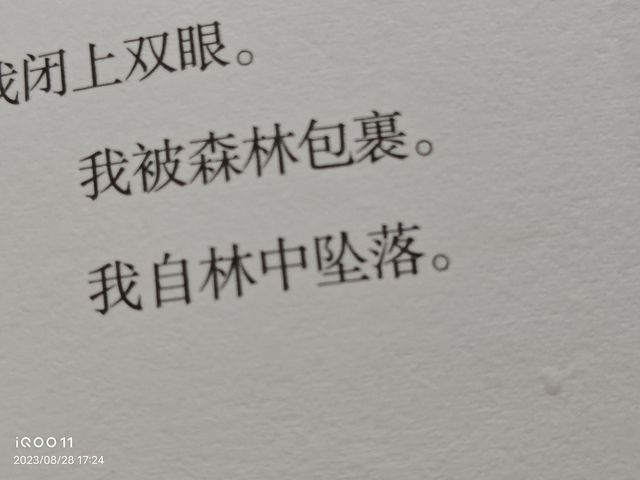 我闭上双眼。
我被森林包裹。
我自林中坠落。
iQOO 11
2023/08/28 17:24